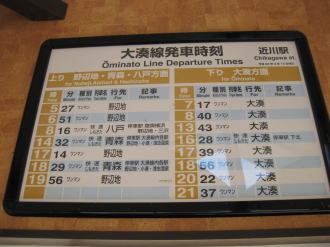 大湊線発車時刻
Ōminato Line Departure Times
近川駅
Chikagawa st.
上り 野辺地・青森・八戸方面
for Noheji, Aomori & Hachinohe
下り 大湊方面
for Ōminato
時 分 種別 列車名 行先 記事
Time Minute For Remarks
時 分 種別 列車名 行先 記事
Time Minute For Remarks
5 27 ワンマン 野辺地
6 51 ワンマン 野辺地
8 16 快速 しもきた 八戸
14 32 快速 しもきた 青森
17 14 ワンマン 野辺地
18 29 快速 しもきた 青森
19 56 ワンマン 野辺地
7 17 ワンマン 大湊
8 40 ワンマン 大湊
13 43 快速 しもきた 大湊
16 28 快速 しもきた 大湊 停車駅 下北
18 56 ワンマン 大湊
20 22 ワンマン 大湊
21 37 ワンマン 大湊